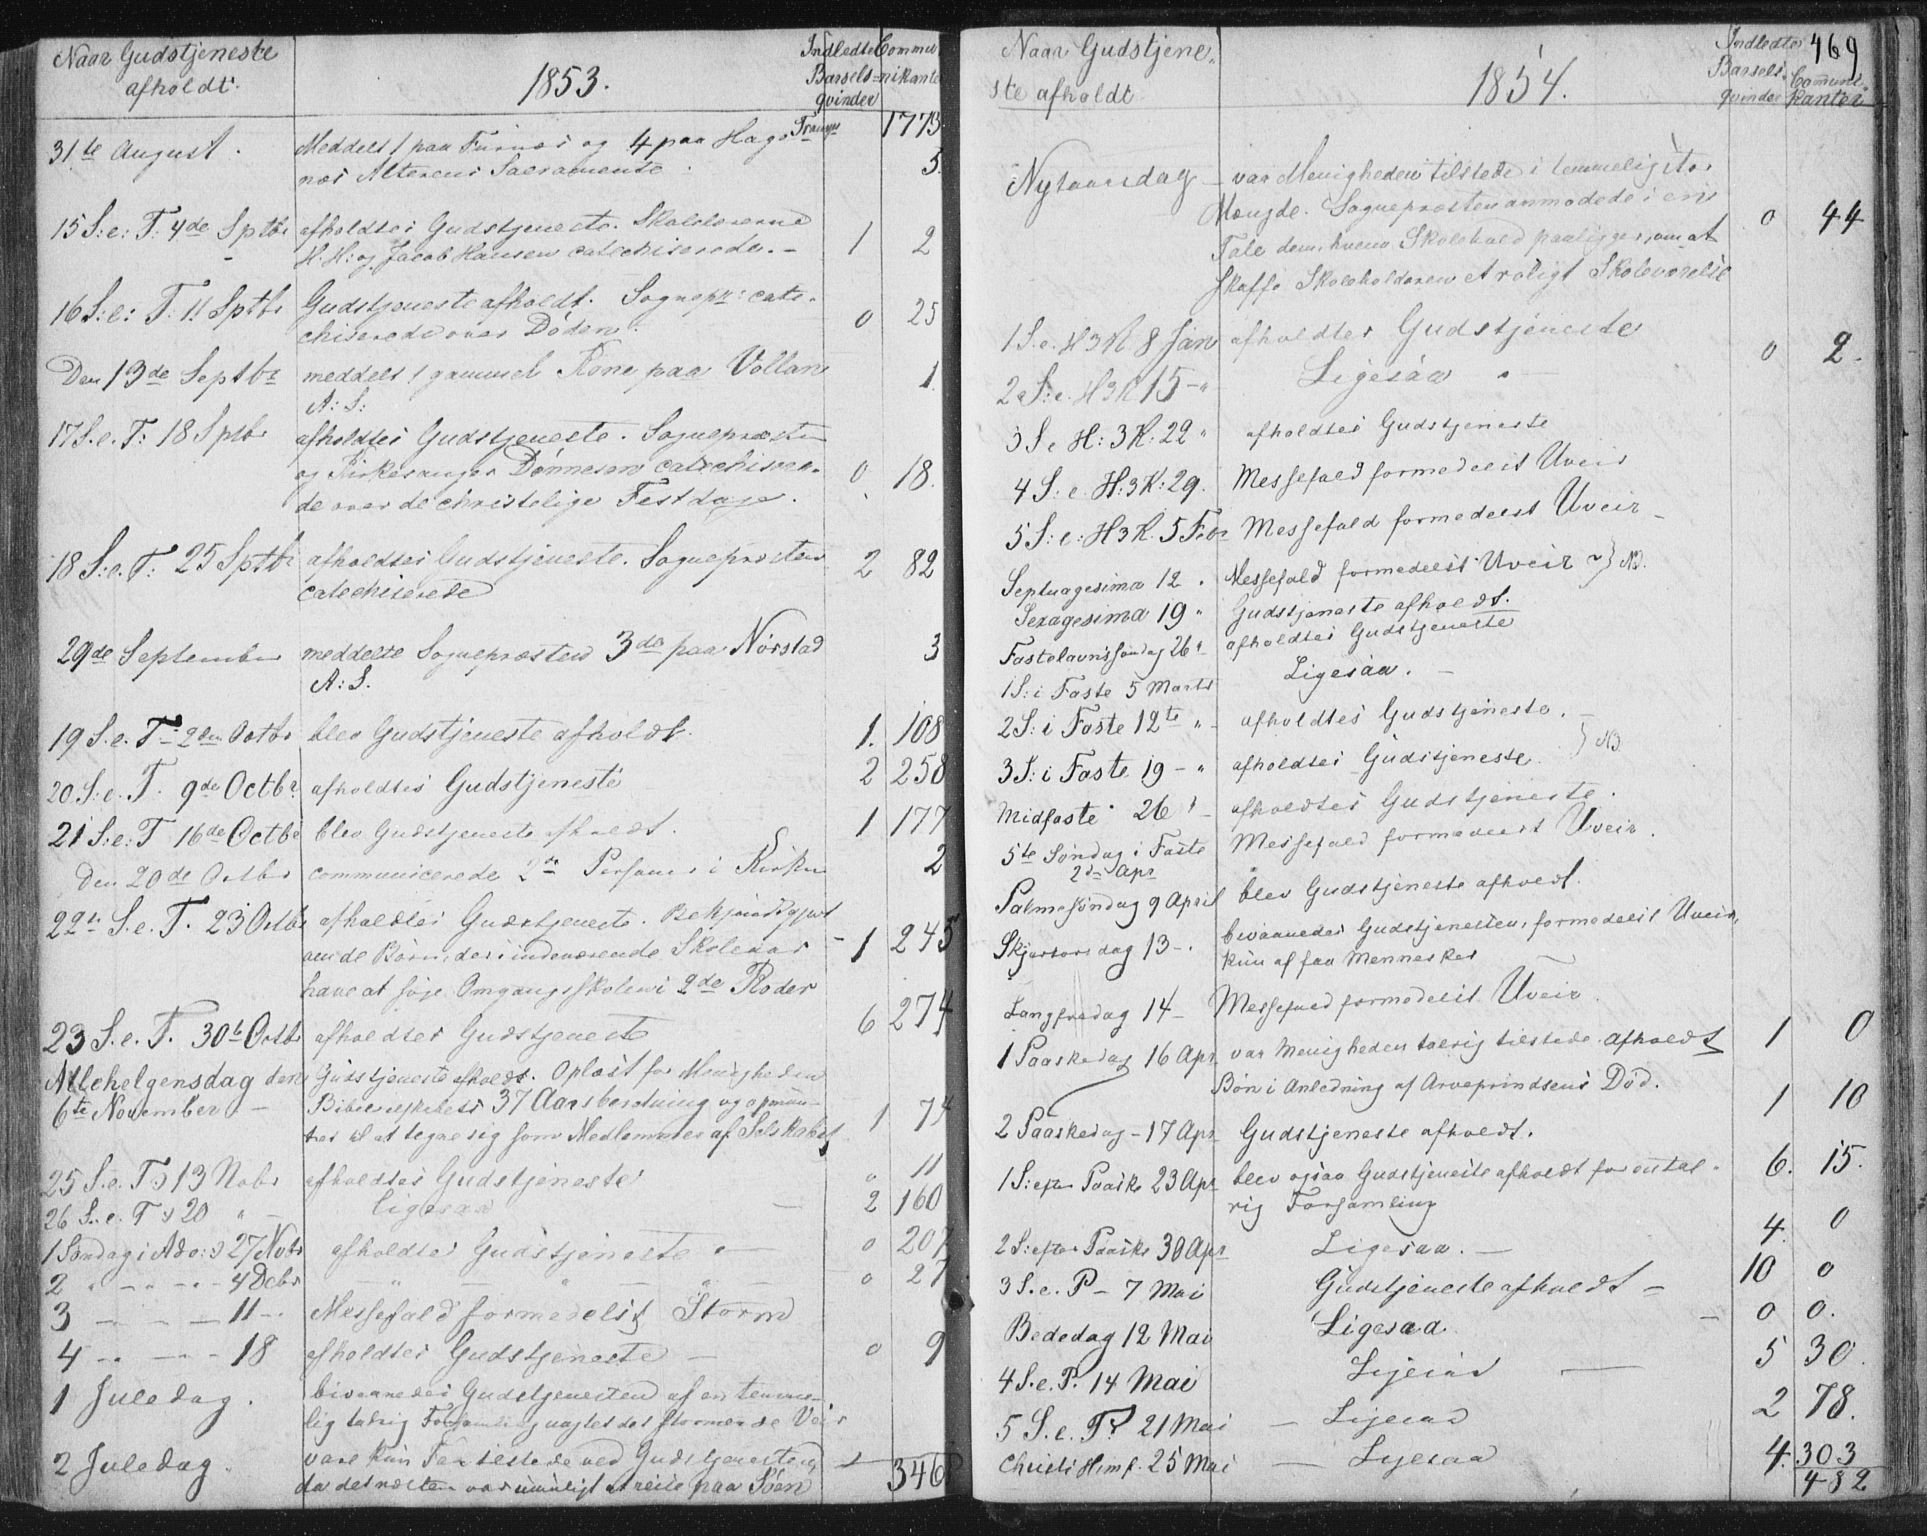 Naar Gudstjeneste
afholdt.
1853.
Indledte Commu-
Barsels= nikante
qvinder
Transp 1773
31te August. Meddelt 1 paa Furnes og 4 paa Hage
nes Alterens Sacramente. 5.
15 S: e: T: 4de Sptbr afholdtes Gudstjeneste. Skolelærerne 1 2
H. H: og Jacob Hansen catechiserede. –
16 S: e: T. 11 Sptbr Gudstjeneste afholdt. Sognepr: cate- 0 25
chiserede over Døden.
Den 13de Septbr meddelt 1 gammel Kone paa Vollan 1
A: S:
17 S. e. T: 18 Sptbr afholdtes Gudstjeneste. Sognepræsten
og Kirkesanger Dønnesen catechisere- 0 18.
de over de christelige Festdage.
18 S: e. T: 25 Sptbr afholdtes Gudstjeneste. Sognepræsten 2 82
catechiserede
29de September meddelte Sognepræsten 3de paa Nørstad 3
A: S.
19 S. e. T. 2den Octbr blev Gudstjeneste afholdt. 1. 108
20. S: e. T. 9de Octbr. afholdtes Gudstjeneste 2 258
21 S: e: T 16de Octbr blev Gudstjeneste afholdt. 1 177
Den 20de Octbr communicerede 2de Personer i Kirken 2
22de S. e. T. 23 Octbr afholdtes Gudstjeneste. Bekjendtgjort
de Børn, der i indeværende Skoleaar – 1 245
have at søge Omgangsskolen i 2de Roder
23 S. e. T. 30te Octbr afholdtes Gudstjeneste 6 274
Allehelgensdag den Gudstjeneste afholdt. Oplæst for Menigheden
6te November – Bibelselskabets 37 Aarsberetning og opmun- 1 74
tret til at tegne sig som Medlemmer af Selskabet
25 S. e. T. 13 Nobr afholdtes Gudstjeneste 0 11
26 S. e. T. 20 " – ligesaa – 2 160
1 Søndag i Adv: 27 Nobr afholdtes Gudstjeneste – 0 207
2 " – – – 4 Debr – " – " – " – 0 27
3 – – – 11 – Messefald formedelst Storm
4 – – – 18 afholdtes Gudstjeneste – 0 9
1 Juledag. bivaanedes Gudstjenesten af en temme-
lig talrig Forsamling uagtet det stormende Veir
2 Juledag. vare kun Faa tilstede ved Gudstjenesten,
da det næsten var umuligt at reise paa Søen 346
Naar Gudstjene-
ste afholdt
1854.
Indledte 469
Barsels- Communi-
qvinder kanter
Nytaarsdag – var Menigheden tilstede i temmelig stor
Mængde. Sognepræsten anmodede i en 0 44
Tale dem, hvem Skolehold paaligger, om at
skaffe Skoleholderen et roligt Skoleværelse
1 S. e. H3K 8 Jan afholdtes Gudstjeneste 0 2.
2 S: e. H3K 15 – " Ligesaa " –
3 S. e H: 3K: 22 " afholdtes Gudstjeneste
4 S: e. H: 3K: 29. Messefald formedelst Uveir
5 S: e: H3K. 5 Febr Messefald formedelst Uveir –
Septuagesima 12. Messefald formedelst Uveir } NB.
Sexagesima 19 " Gudstjeneste afholdt.
Fastelavnssøndag 26 " afholdtes Gudstjeneste
1 S: i Faste 5 Marts Ligesaa. –
2 S: i Faste 12te " – afholdtes Gudstjeneste. –
3 S: i Faste 19 – " afholdtes Gudstjeneste. } NB.
Midfaste 26 " – afholdtes Gudstjeneste.
5te Søndag i Faste Messefald formedelst Uveir.
2den Apr
Palmesøndag 9 April blev Gudstjeneste afholdt.
Skjærtorsdag 13 –. bivaanedes Gudstjenesten, formedelst Uveir,
kun af faa Mennesker
Langfredag 14 – Messefald formedelst Uveir.
1 Paaskedag 16 Apr var Menigheden talrig tilstede. Afholdt 1 0
Bøn i Anledning af Arveprindsens Død.
2 Paaskedag – 17 Apr Gudstjeneste afholdt. 1 10
1 S: efter Paaske 23 Apr blev ogsaa Gudstjeneste afholdt for en tal- 6. 15.
rig Forsamling
2 S: efter Paaske 30 Apr Ligesaa. – 4. 0
3 S. e. P – 7 Mai Gudstjeneste afholdt – 10 0
Bededag 12 Mai Ligesaa. – 0 0.
4 S. e. P. 14 Mai Ligesaa – 5 30.
5 S. e. P. 21 Mai – Ligesaa 2 78.
Christi Himf. 25 Mai – Ligesaa 4. 303
482